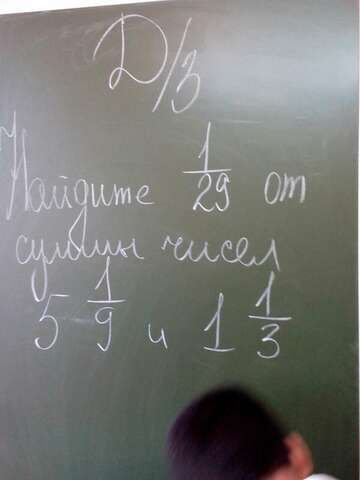 Д/З
Найдите 1/29 от
суммы чисел
5 1/9 и 1 1/3